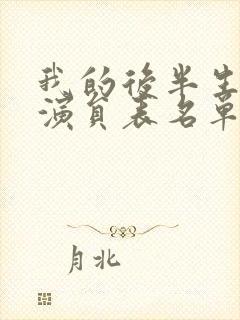 我的後半生
演員表名單
月北